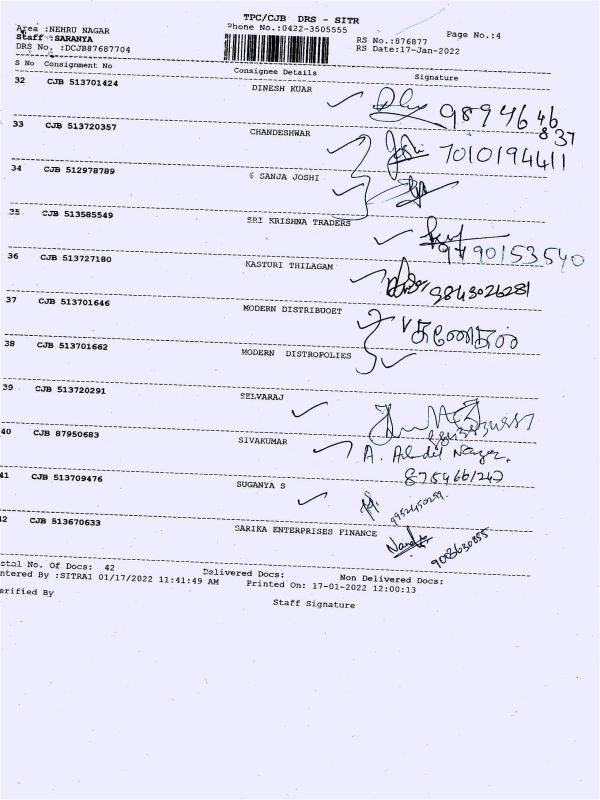 TPC/CJB DRS - SITR
Area :NEHRU NAGAR
Phone No.:0422-3505555
Page No.:4
Staff :SARANYA
RS No.:876877
DRS No. :DCJB87687704
RS Date:17-Jan-2022
S No Consignment No Consignee Details Signature
32 CJB 513701424 DINESH KUAR
9894646
837
33 CJB 513720357 CHANDESHWAR
7010194411
34 CJB 512978789 G SANJA JOSHI
35 CJB 513585549 SRI KRISHNA TRADERS
9790153540
36 CJB 513727180 KASTURI THILAGAM
9843026281
37 CJB 513701646 MODERN DISTRIBUOET
38 CJB 513701662 MODERN DISTROPOLIES
39 CJB 513720291 SELVARAJ
40 CJB 87950683 SIVAKUMAR
A.
41 CJB 513709476 SUGANYA S
42 CJB 513670633 SARIKA ENTERPRISES FINANCE
Total No. Of Docs: 42 Delivered Docs: Non Delivered Docs:
ntered By :SITRA1 01/17/2022 11:41:49 AM Printed On: 17-01-2022 12:00:13
erified By
Staff Signature